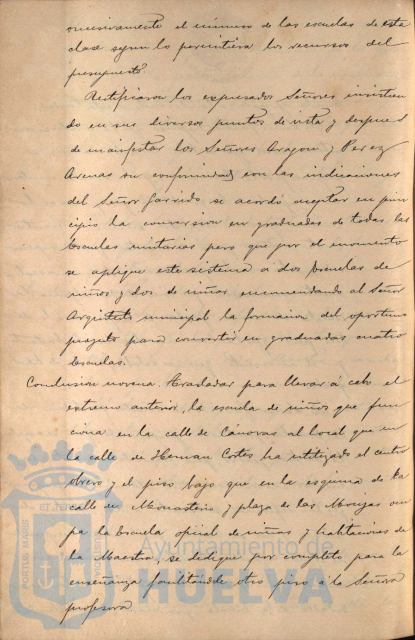 sucesivamente el número de las escuelas de esta
clase segun lo permitiera los recursos del
presupuesto.
Rectificaron los expresados Señores insistien
do en sus diversos puntos de vista y despues
de manifestar los Señores Aragon y Perez
Arenas su conformidad con las indicaciones
del Señor Garrido se acordó aceptar en prin
cipio la conversion en graduadas de todas las
Escuelas unitarias pero que por el momento
se aplique este sistema a dos Escuelas de
niños y dos de niñas encomendando al Señor
Arquitecto municipal la formacion del oportuno
proyecto para convertir en graduadas cuatro
Escuelas.
Conclusion novena. Trasladar para llevar á cabo el
extremo anterior, la escuela de niños que fun
ciona en la calle de Cánovas al local que en
la calle de Hernan Cortés ha utilizado el centro
obrero y el piso bajo que en la esquina de la
calle de Monasterio y plaza de las Monjas ocu
pa la Escuela oficial de niñas y habitaciones de
la Maestra, se dedique por completo para la
enseñanza facilitandole otro piso á la Señora
profesora
Ayuntamiento de
HUELVA
PORTUS MARIS